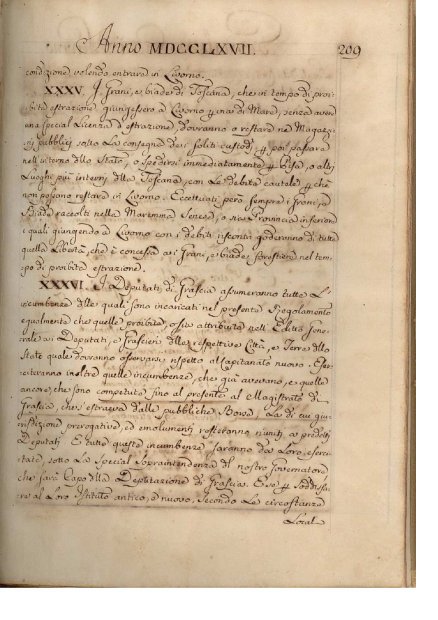 Anno MDCCLXVII. 209
condizione volendo entrare in Livorno.
XXXV. I Grani, e biade di Toscana, che in tempo di proi-
bita estrazione giungessero a Livorno p via di Mare, senza aver
una special Licenza d'estrazione, dovranno restare ne Magazzi-
ni pubblici sotto La consegna de' soliti custodi, p poi passare
nell'interno dello Stato, o spedirsi immediatamente p Pisa, o altri
Luoghi più interni della Toscana, con Le debite cautele p che
non possano restare in Livorno. Eccettuati però sempre i Grani, e
Biade raccolti nella Maremma Senese, o sia Provincia inferiore
i quali giungendo a Livorno con i debiti riscontri goderanno di tutta
quella Libertà, che è concessa ai Grani, e biade forestiere nel tem-
po di proibita estrazione.
XXXVI. I Deputati di Grascia assumeranno tutte L'
incumbenze delle quali sono incaricati nel presente Regolamento
egualmente che quelle proibite, o sia attribuite nell'Editto Gene-
rale ai Deputati, e Grascieri delle respettive Città, e Terre dello
Stato quale dovranno osservare rispetto al Capitanato nuovo. Eser-
citeranno inoltre quelle incumbenze, che qui avevano, e quelle
ancora, che sono competute fino al presente al Magistrato di
Grascia, che si estraeva dalle pubbliche Borse. La di cui giu-
risdizione prerogative, ed emolumenti resteranno riuniti ai predetti
Deputati. E tutte queste incumbenze saranno da Loro eserci-
tate, sotto La special Sopraintendenza del nostro Governatore
che sarà Capo della Deputazione di Grascia. E se p soddisfa-
re al Loro Istituto antico, e nuovo, secondo Le circostanze
Local-